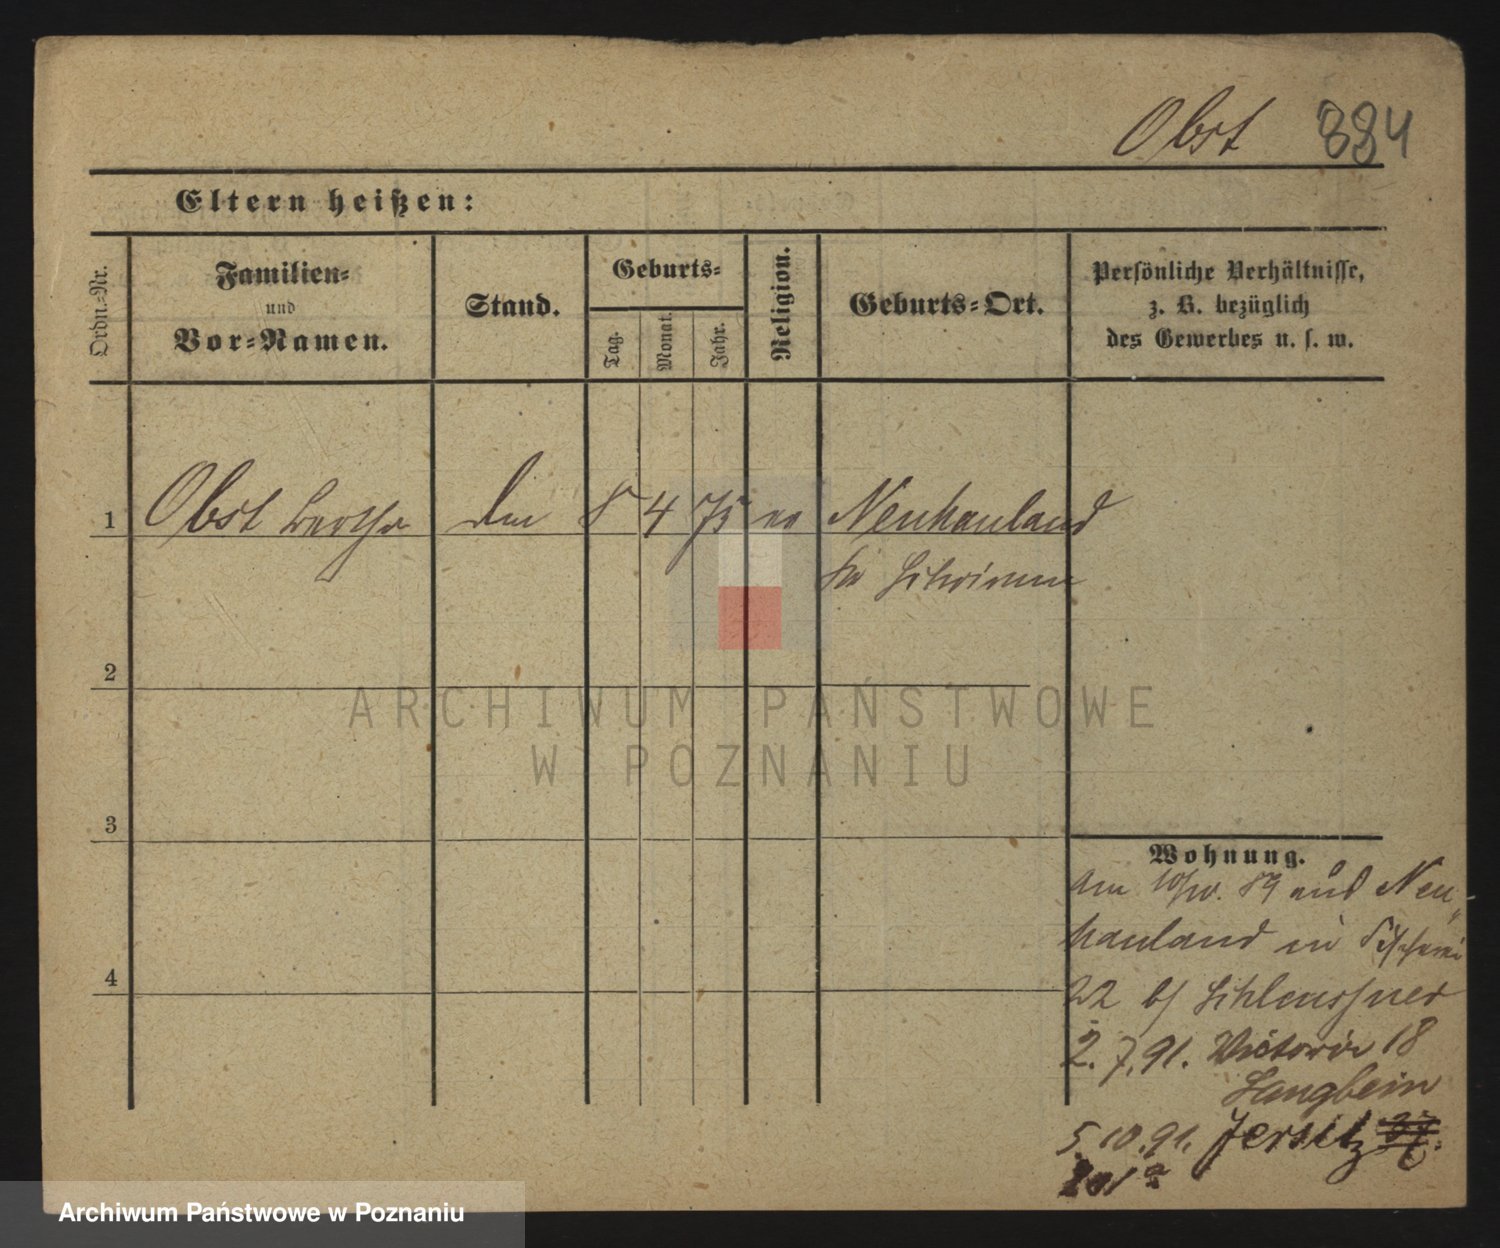 Obst 384
Eltern heißen:
Ordn.-Nr.
Familien-
und
Vor-Namen.
Stand.
Geburts-
Tag.
Monat.
Jahr.
Religion.
Geburts-Ort.
Persönliche Verhältnisse,
z. B. bezüglich
des Gewerbes u. s. w.
1 Obst Bertha 8 4 75 ev Neuhauland
2
3
4
Wohnung.
am 10/10. 89 aus Neu-
hauland in
22 b/ Schleussner
2. 7. 91. Victoria 18
Langbein
5. 10. 91. Jersitz
ARCHIWUM PAŃSTWOWE
W POZNANIU
Archiwum Państwowe w Poznaniu